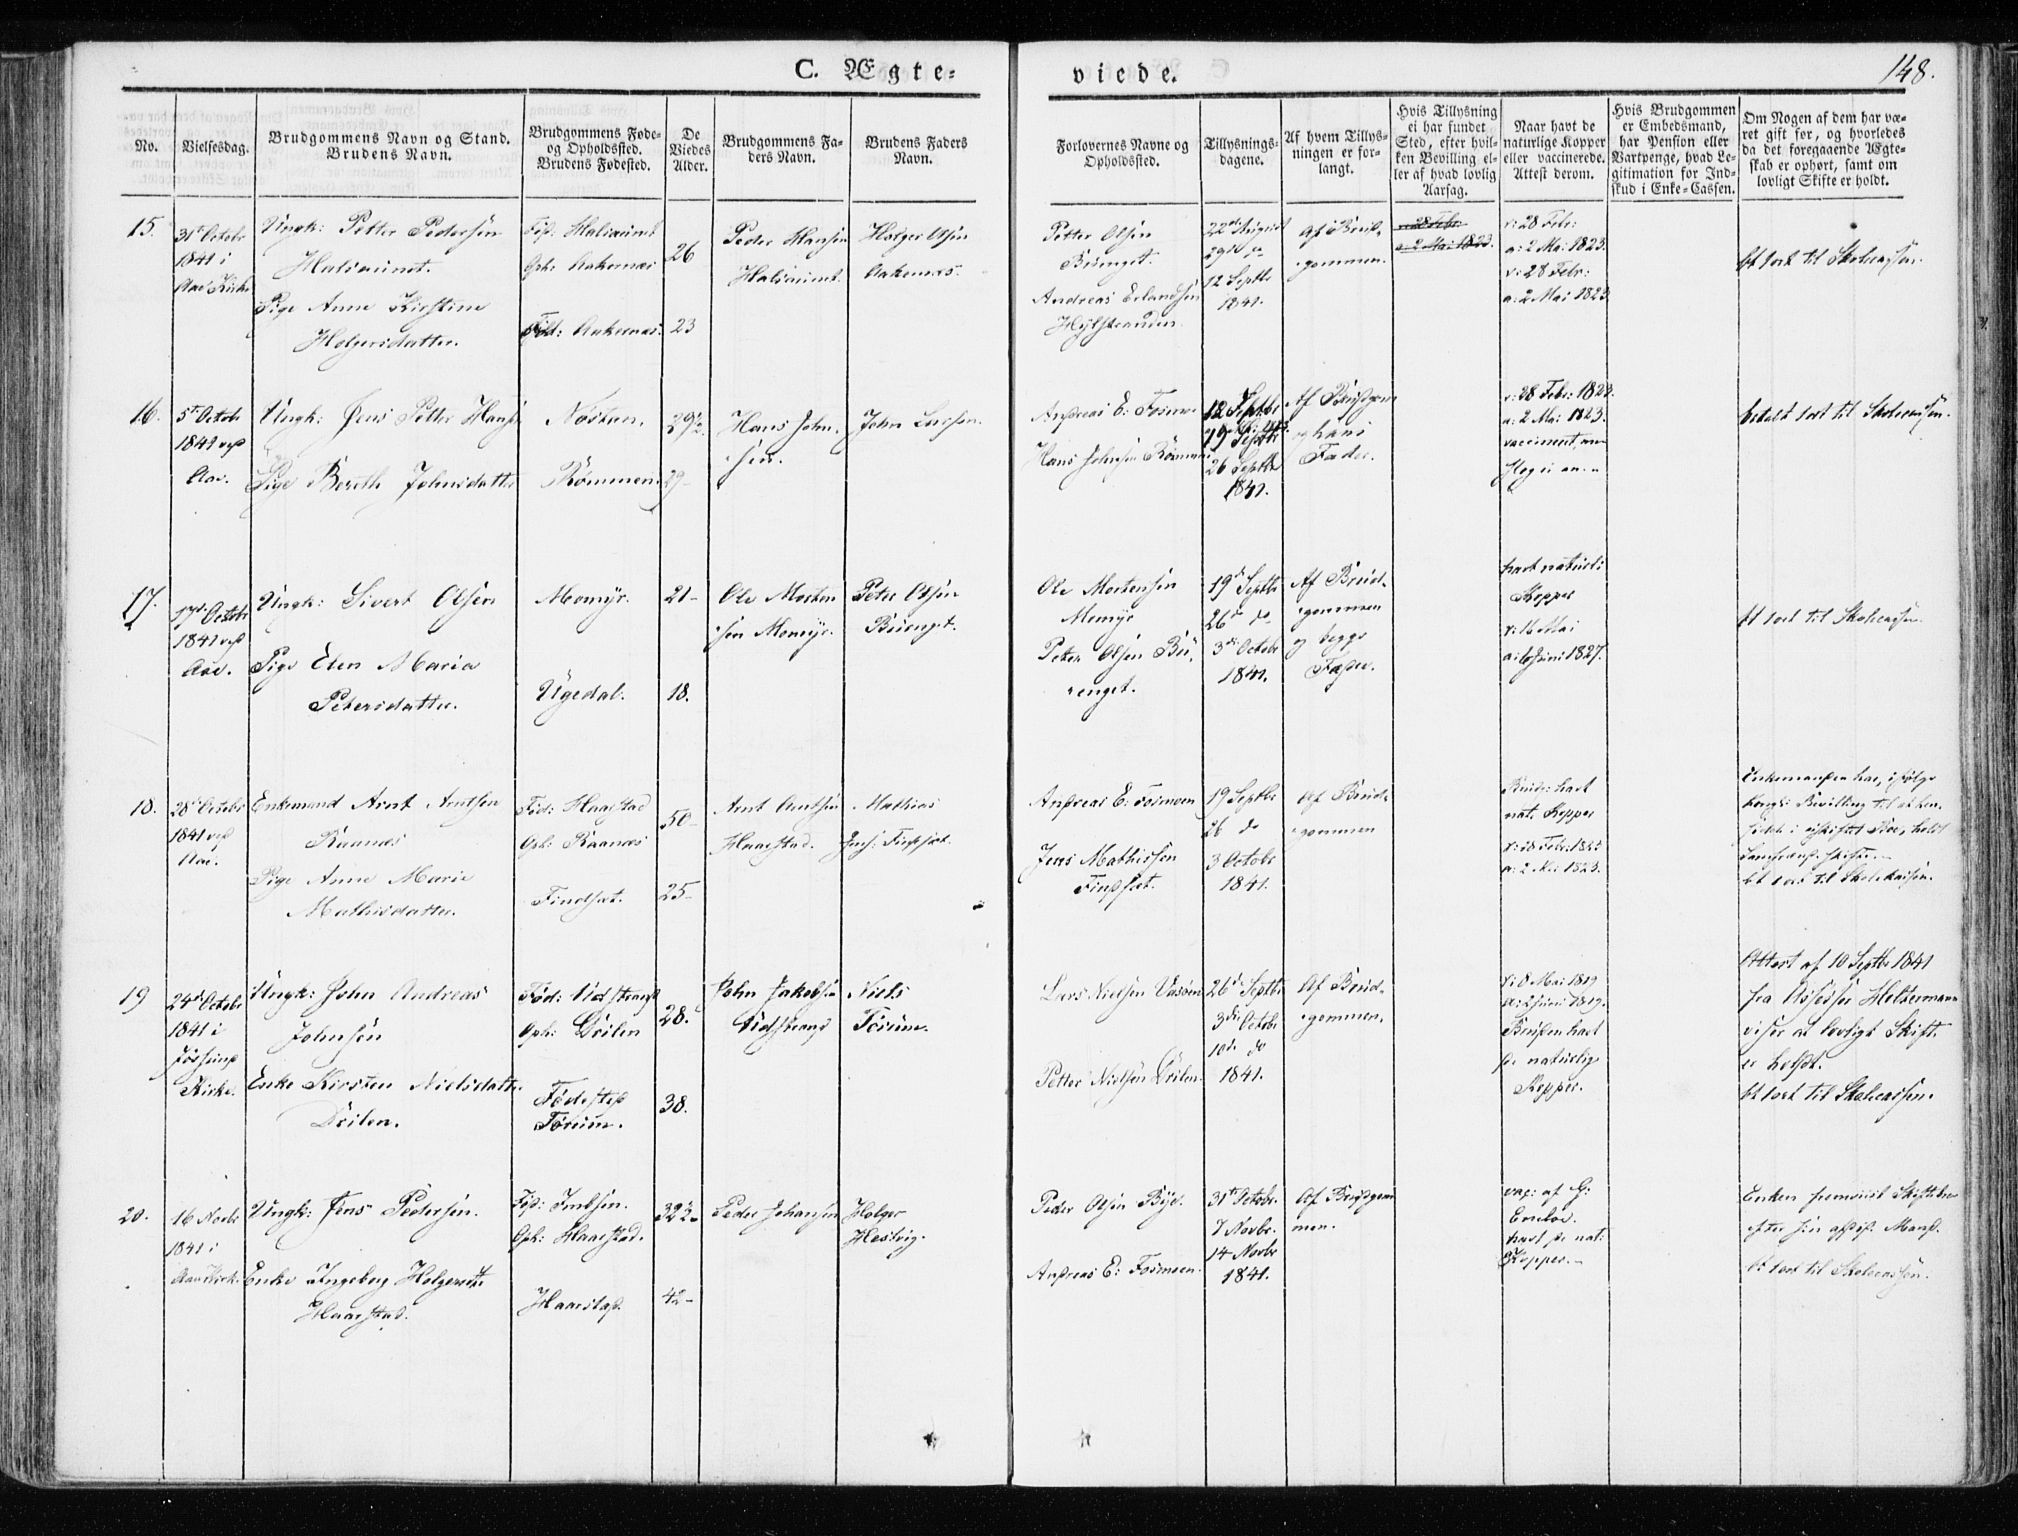 148.
C. Ægte-
viede.
No.
Vielsesdag.
Brudgommens Navn og Stand.
Brudens Navn.
Brudgommens Føde-
og Opholdssted.
Brudens Fødested.
De
Viedes
Alder.
Brudgommens Fa-
ders Navn.
Brudens Faders
Navn.
Forlovernes Navne og
Opholdssted.
Tillysnings-
dagene.
Af hvem Tillys-
ningen er for-
langt.
Hvis Tillysning
ei har fundet
Sted, efter hvil-
ken Bevilling el-
ler af hvad lovlig
Aarsag.
Naar havt de
naturlige Kopper
eller vaccinerede.
Attest derom.
Hvis Brudgommen
er Embedsmand,
har Pension eller
Vartpenge, hvad Le-
gitimation for Ind-
skud i Enke-Cassen.
Om Nogen af dem har væ-
ret gift før, og hvorledes
da det foregaaende Ægte-
skab er ophørt, samt om
lovligt Skifte er holdt.
15.
31 Octobr
1841 i
Aae Kirke
Ungk: Petter Pedersen
Pige Anne Kirstine
Holgersdatter.
Oph: Aakernæs
Fød: Aakernæs.
26
23
Peder Hansen
Holger Olsen
Aakernæs.
Petter Olsen
Buenget.
Andreas Erlandsen
22de August
29de do
12 Septbr
1841.
Af Brud-
gommen.
v: 28 Febr:
a: 2 Mai 1823.
v: 28 Febr:
a: 2 Mai 1823
bt 1ort til Skolecassen.
16.
5te Octobr
1841 ved
Aae.
Ungk: Jens Petter Hansen
Pige Bereth Johnsdatter
29½
29
Hans John-
sen.
John Larsen.
Andreas E: Fosmoen
Hans Johnsen
12 Septbr
19 Septbr
26 Septbr
1841.
Af Brudgom
og hans
Fader.
v: 28 Febr: 1823.
a: 2 Mai 1823.
betalt 1ort til Skolecassen.
17.
17de Octobr
1841 ved
Aae.
Ungk: Sivert Olsen
Pige Elen Maria
Petersdatter.
Momyr.
Ugedal.
21-
18.
Ole Morten-
sen Momyr.
Peter Olsen
Buenget.
Ole Mortensen
Momyr
Peter Olsen Bu-
enget.
19de Septbr
26de do
3de Octobr
1841.
Af Brud-
gommen
og begges
Fader.
havt naturl:
Kopper
v: 16 Mai
a: Juni 1827.
bt 1ort til Skolecassen.
18.
28de Octobr
1841 ved
Aae.
Enkemand Arnt Arntsen
Raanæs
Pige Anne Marie
Mathisdatter.
Fød: Haarstad
Oph: Raanæs
Findsæt.
50-
25-
Arnt Arntsen
Haarstad.
Mathias
Andreas E: Fosmoen
Jens Mathissen
Findsæt.
19 Septbr
26 do
3 Octobr
1841.
Af Brud-
gommen
Brudg: havt
nat. Kopper
a: 2 Mai 1823.
Enkemanden har, ifølge
bt 1ort til Skolecassen.
19
24de Octobr
1841 i
Kirke.
Ungk: John Andreas
Johnsen
Enke Kirsten Nielsdatter
Drilen.
Fød: Vidstrand
Oph: Drilen
Fødested
Forum.
28.
38.
John Jakobsen
Vidstrand
Niels
Forum.
Lars Nielsen
Petter Nielsen Drilen
26de Septbr
3de Octobr
10de do
1841.
Af Brud-
gommen.
v: 8 Mai 1819
a: Juni 1819.
Bruden havt
de naturlige
Kopper.
Attest af 10 Septbr 1841
fra Assessor Heltzermann
viser at lovligt Skifte
er holdt.
bt 1ort til Skolecassen.
20.
16 Novbr
1841 i
Aae Kirke
Ungk: Jens Pedersen.
Enke Ingeborg Holgersdtr
Haarstad.
Oph: Haarstad.
Haarstad.
32½
42-
Peder Johansen
Holger
Hestvig.
Peder Olsen Bye.
Andreas E: Fosmoen.
31te Octobr
7 Novbr.
14 Novbr
1841.
Af Brudgom-
men.
vac: af G:
havt de nat:
Kopper.
Enken fremviist Skiftebrev
efter sin afdøde Mand.
bt 1ort til Skolecassen.